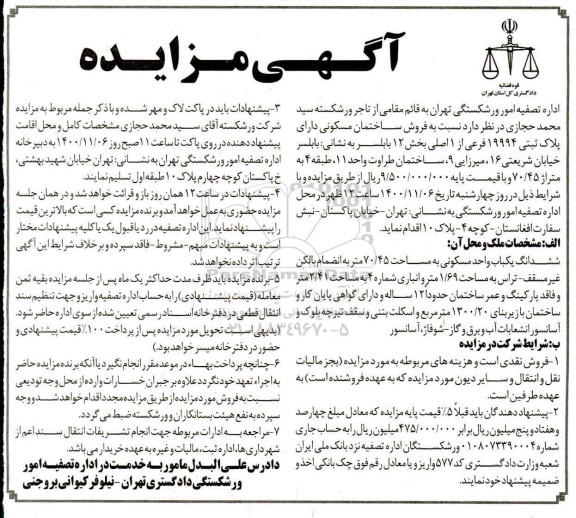 قوه قضائیه
دادگستری کل استان تهران
آگهی مزایده
اداره تصفیه امور ورشکستگی تهران به قائم مقامی از تاجر ورشکسته سید
محمد حجازی در نظر دارد نسبت به فروش ساختمان مسکونی دارای
پلاک ثبتی ۱۹۹۹۴ فرعی از ۱ اصلی بخش ۱۲ بابلسر به نشانی: بابلسر
خیابان شریعتی ۱۶، میرزایی ۹، ساختمان طراوت واحد ۱۱، طبقه ۴ به
متراژ ۷۰/۴۵ و با قیمت پایه ۹/۵۰۰/۰۰۰/۰۰۰ ریال از طریق مزایده و با
شرایط ذیل در روز چهارشنبه تاریخ ۱۴۰۰/۱۱/۰۶ ساعت ۱۲ ظهر در محل
اداره تصفیه امور ورشکستگی به نشانی: تهران-خیابان پاکستان-نبش
سفارت افغانستان-کوچه ۴-پلاک ۱۰ اقدام نماید.
الف: مشخصات ملک و محل آن:
ششدانگ یکباب واحد مسکونی به مساحت ۷۰/۴۵ متر به انضمام بالکن
غیرمسقف-تراس به مساحت ۱/۶۹ متر و انباری شماره ۴ به مساحت ۲/۴۱ متر
و فاقد پارکینگ و عمر ساختمان حدوداً ۱۲ ساله و دارای گواهی پایان کار و
ساختمان با زیربنای ۱۳۰۰/۲۰ متر مربع و اسکلت بتنی و سقف تیرچه بلوک و
آسانسور انشعابات آب و برق و گاز-شوفاژ، آسانسور
ب: شرایط شرکت در مزایده
۱-فروش نقدی است و هزینه های مربوطه به مورد مزایده (بجز مالیات
نقل و انتقال و سایر دیون مورد مزایده که به عهده فروشنده است) به
عهده طرفین است.
۲-پیشنهاد دهندگان باید قبلاً ۵٪ قیمت پایه مزایده که معادل مبلغ چهارصد
و هفتاد و پنج میلیون ریال برابر ۴۷۵/۰۰۰/۰۰۰ میلیون ریال را به حساب جاری
شماره ۰۱۰۸۰۷۳۳۹۰۰۰۴ ورشکستگان اداره تصفیه نزد بانک ملی ایران
شعبه وزارت دادگستری کد ۵۷۷ واریز و یا معادل رقم فوق چک بانکی اخذ و
ضمیمه پیشنهاد خود نمایند.
۳-پیشنهادات باید در پاکت لاک و مهر شده و با ذکر جمله مربوط به مزایده
شرکت ورشکسته آقای سید محمد حجازی مشخصات کامل و محل اقامت
پیشنهاد دهنده در روی پاکت تا ساعت ۱۱ صبح روز ۱۴۰۰/۱۱/۰۶ به دبیرخانه
اداره تصفیه امور ورشکستگی تهران به نشانی: تهران خیابان شهید بهشتی،
خ پاکستان کوچه چهارم پلاک ۱۰ طبقه اول تسلیم نمایند.
۴-پیشنهادات در ساعت ۱۲ همان روز باز و قرائت خواهد شد و در همان جلسه
مزایده حضوری به عمل خواهد آمد و برنده مزایده کسی است که بالاترین قیمت
را پیشنهاد نماید. این اداره تصفیه در رد یا قبول یک یا کلیه پیشنهادات مختار
است و به پیشنهادات مبهم-مشروط-فاقد سپرده و بر خلاف شرایط این آگهی
ترتیب اثر داده نخواهد شد.
۵-برنده مزایده باید ظرف مدت حداکثر یک ماه پس از جلسه مزایده بقیه ثمن
معامله (قیمت پیشنهادی) را به حساب اداره تصفیه واریز و جهت تنظیم سند
انتقال قطعی در دفترخانه اسناد رسمی تعیین شده از سوی اداره حاضر شود.
(بدیهی است تحویل مورد مزایده پس از پرداخت ۱۰۰٪ قیمت پیشنهادی و
حضور در دفترخانه میسر خواهد بود.)
۶-چنانچه پرداخت بهاء در موعد مقرر انجام نگیرد یا آنکه برنده مزایده حاضر
به اجراء تعهد خود نگردد علاوه بر جبران خسارات وارده از محل وجه تودیعی
نسبت به فروش مورد مزایده از طریق مزایده مجدد اقدام خواهد شد و وجه
سپرده به نفع هیئت بستانکاران و ورشکسته ضبط می گردد.
۷-مراجعه به ادارات مربوطه جهت انجام تشریفات انتقال سند اعم از
شهرداری ها، اداره ثبت، مالیات و غیره به عهده خریدار می باشد.
دادرس علی البدل مامور به خدمت در اداره تصفیه امور
ورشکستگی دادگستری تهران-نیلوفر کیوانی بروجنی